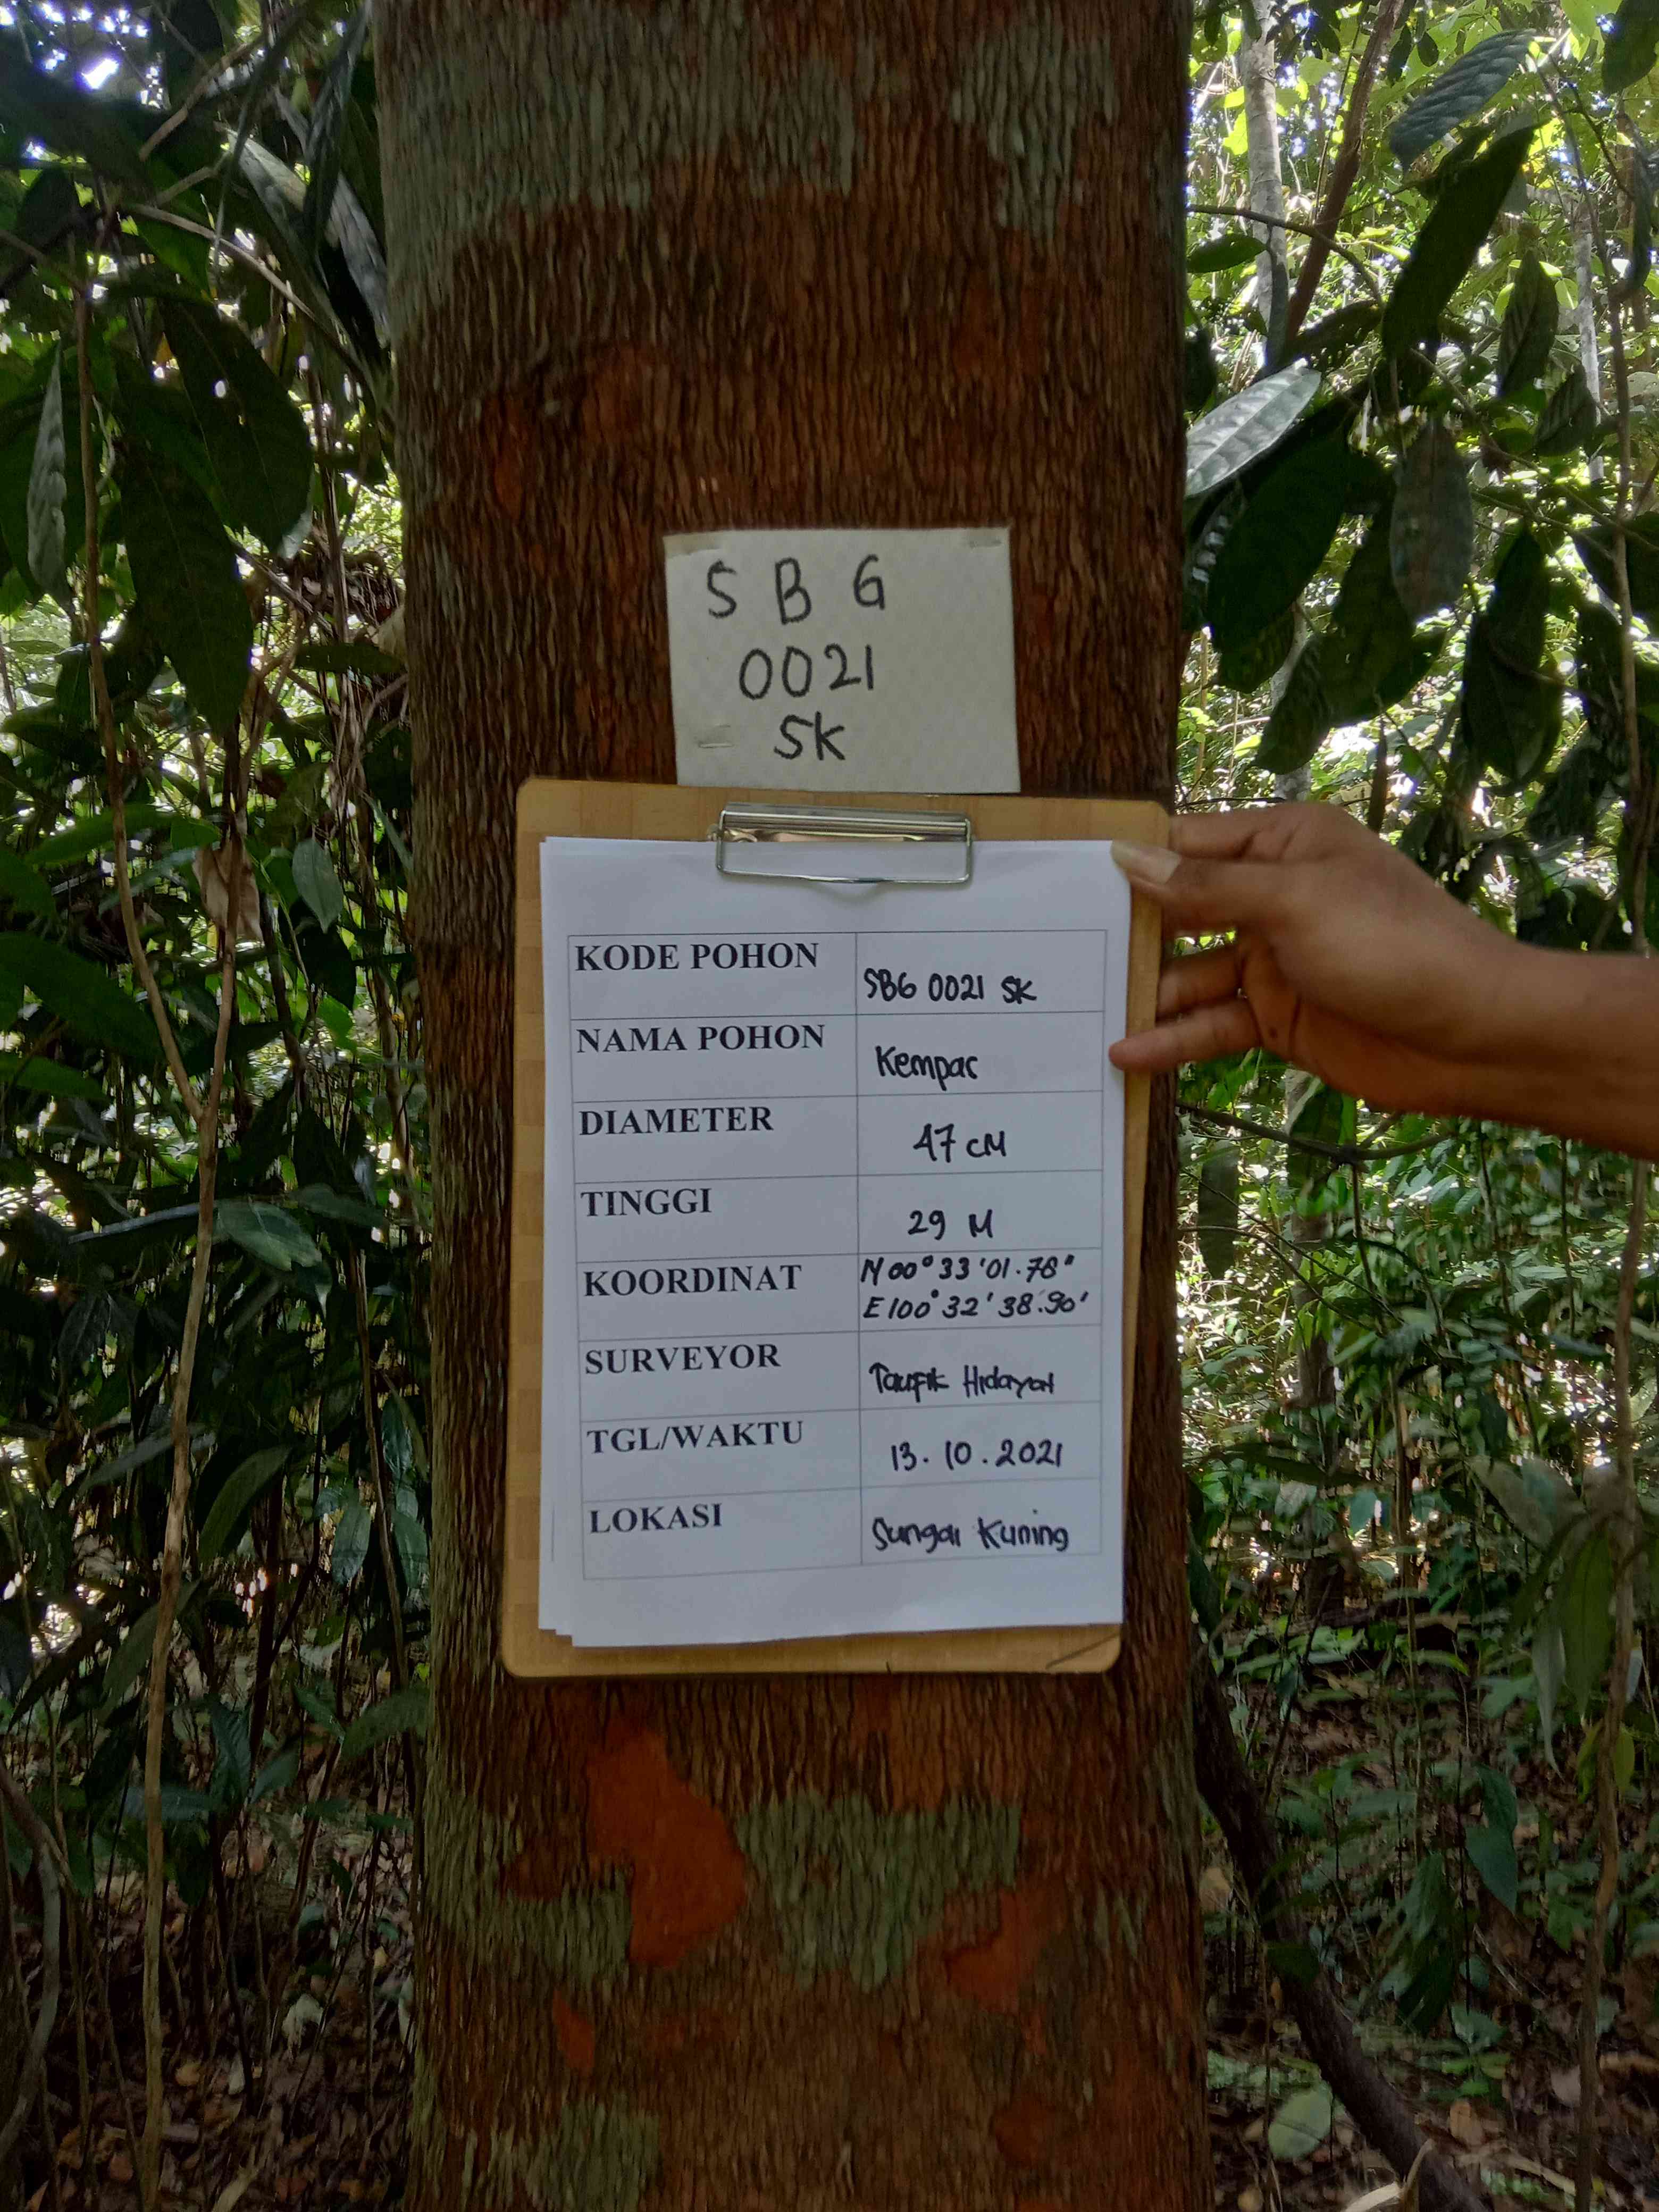 S B G
0021
SK
KODE POHON SBG 0021 SK
NAMA POHON Kempas
DIAMETER 47 CM
TINGGI 29 M
KOORDINAT N 00° 33 '01.78"
E 100° 32' 38.90'
SURVEYOR Taufik Hidayat
TGL/WAKTU 13. 10. 2021
LOKASI Sungai Kuning